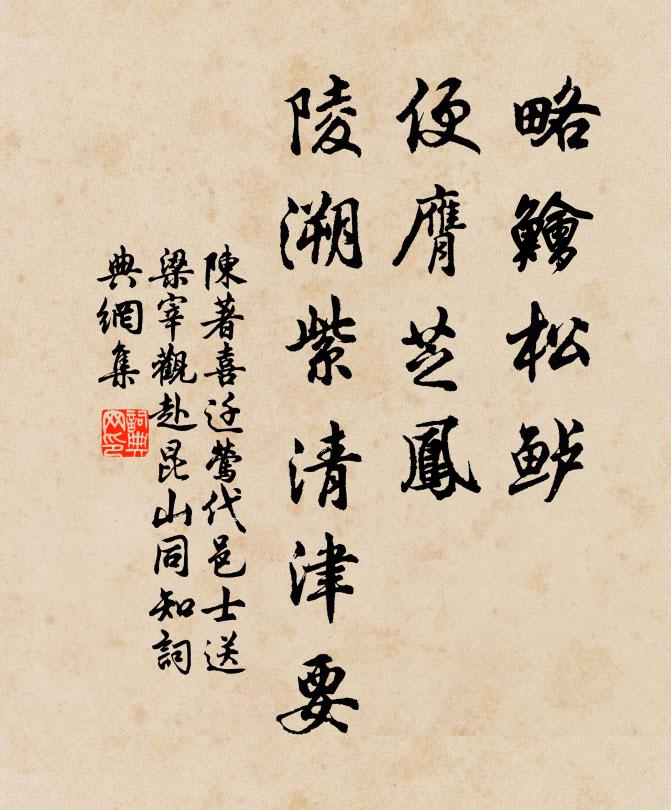 略鱠松鲈
便膺芝鳳
陵溯紫清津要
陳著喜迁鶯代邑士送
梁宰觀赴昆山同知詞
典網集
詞典
网印